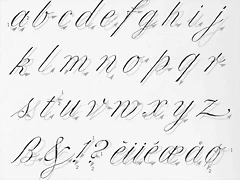 a b c d e f g h i j
k l m n o p q r
s t u v w x y z
ß & ! ? è ü é æ å ø